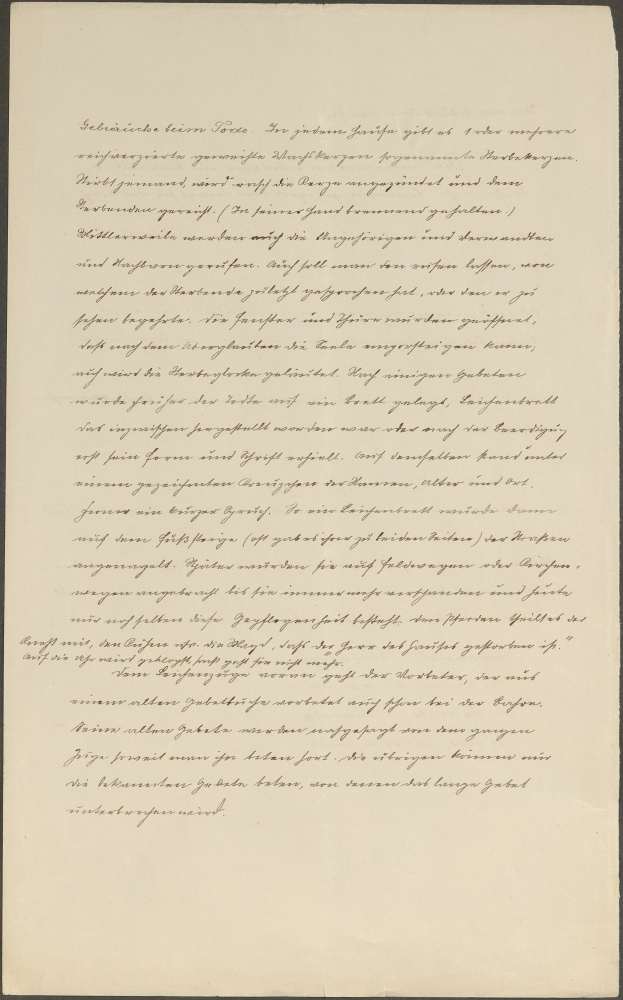 Gebräuche beim Tode. In jedem Hause gibt es 1 oder mehrere
reichverzierte geweihte Wachskerzen sogenannte Sterbekerzen.
Stirbt jemand, wird rasch die Kerze angezündet und dem
Sterbenden gereicht. (In seiner Hand brennend gehalten.)
Mittlerweile werden auch die Angehörigen und Verwandten
und Nachbarn gerufen. Auch soll man den rufen lassen, von
welchem der Sterbende zuletzt gesprochen hat, oder den er zu
sehen begehrte. Die Fenster und Thüre wurden geöffnet,
daß nach dem Aberglauben die Seele emporsteigen kann,
auch wird die Sterbeglocke geläutet. Nach einigen Gebeten
wurde früher der Todte auf ein Brett gelegt, Leichenbrett
das inzwischen hergestellt worden war oder nach der Beerdigung
erst sein Form und Schrift erhielt. Auf demselben stand unter
einem gezeichneten Kreuzchen der Namen, Alter und Ort.
Ferner ein kurzer Spruch. So ein Leichenbrett wurde dann
auf dem Fußsteige (oft gab es ihrer zu beiden Seiten) der Straßen
angenagelt. Später wurden sie auf Feldwegen oder Kirchen-
wegen angebracht bis sie immer mehr verschwanden und heute
nur noch selten diese Gepflogenheit besteht. Den Pferden theilt es der
Knecht mit, den Kühen die Magd, daß "der Herr des Hauses gestorben ist."
Auf die Uhr wird geklopft, sonst geht sie nicht mehr.
Dem Leichenzuge voran geht der Vorbeter, der aus
einem alten Gebetbuche vorbetet auch schon bei der Bahre.
Seine alten Gebete werden nachgesagt von dem ganzen
Zuge soweit man ihn beten hört. Die übrigen können nur
die bekannten Gebete beten, von denen das lange Gebet
unterbrochen wird.